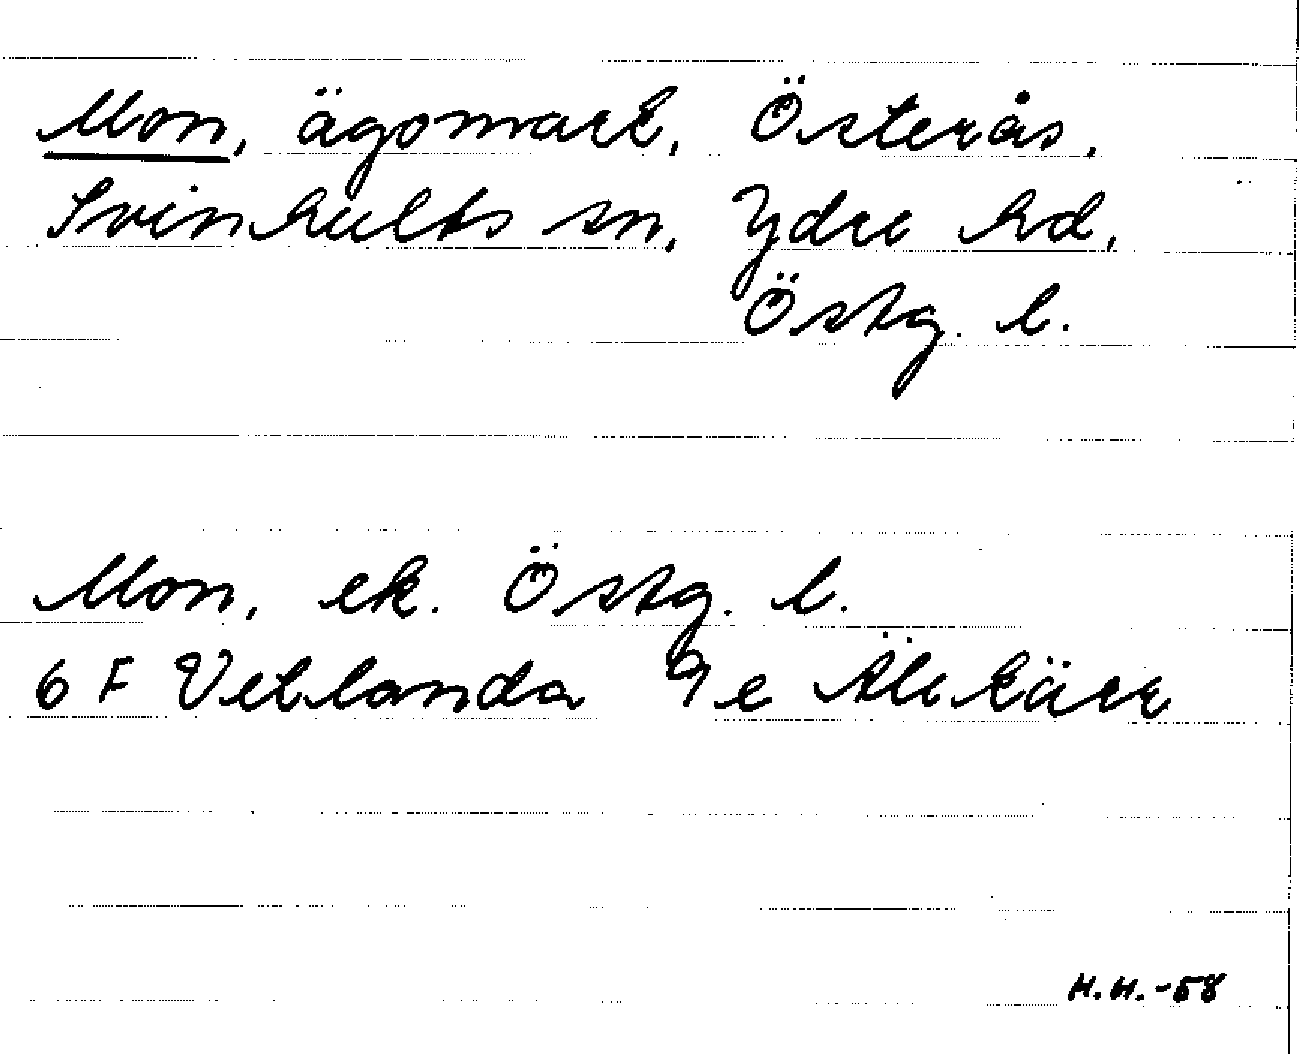 Mon, ägomark, Österås,
Svinhults sn, Ydre hd,
Östg. l.
Mon, ek. Östg. l.
6 F Vetlanda 9 e Älekärr
H.H.-58